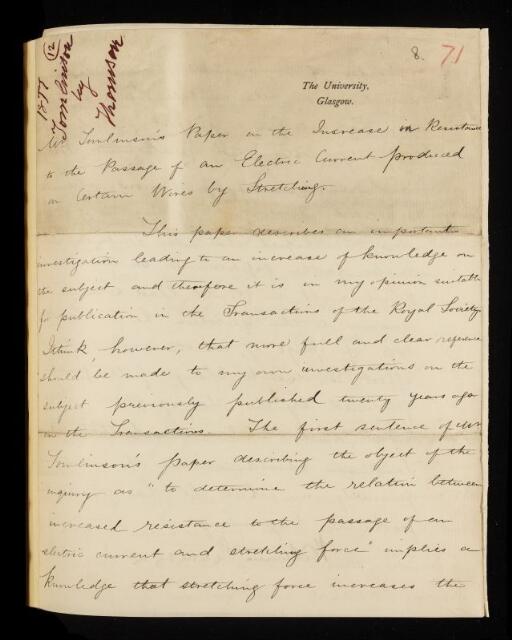 1877
(12)
Tomlinson
by
Thomson
8.
71
The University,
Glasgow.
Mr. Tomlinson's Paper on the Increase in Resistance
to the Passage of an Electric Current produced
on Certain Wires by Stretching.
This paper describes an important
investigation leading to an increase of knowledge on
the subject and therefore it is in my opinion suitable
for publication in the Transactions of the Royal Society.
I think, however, that more full and clear reference
should be made to my own investigations on the
subject previously published twenty years ago
in the Transactions. The first sentence of Mr
Tomlinson's paper describing the object of the
inquiry as "to determine the relation between
increased resistance to the passage of an
electric current and stretching force" implies a
knowledge that stretching force increases the